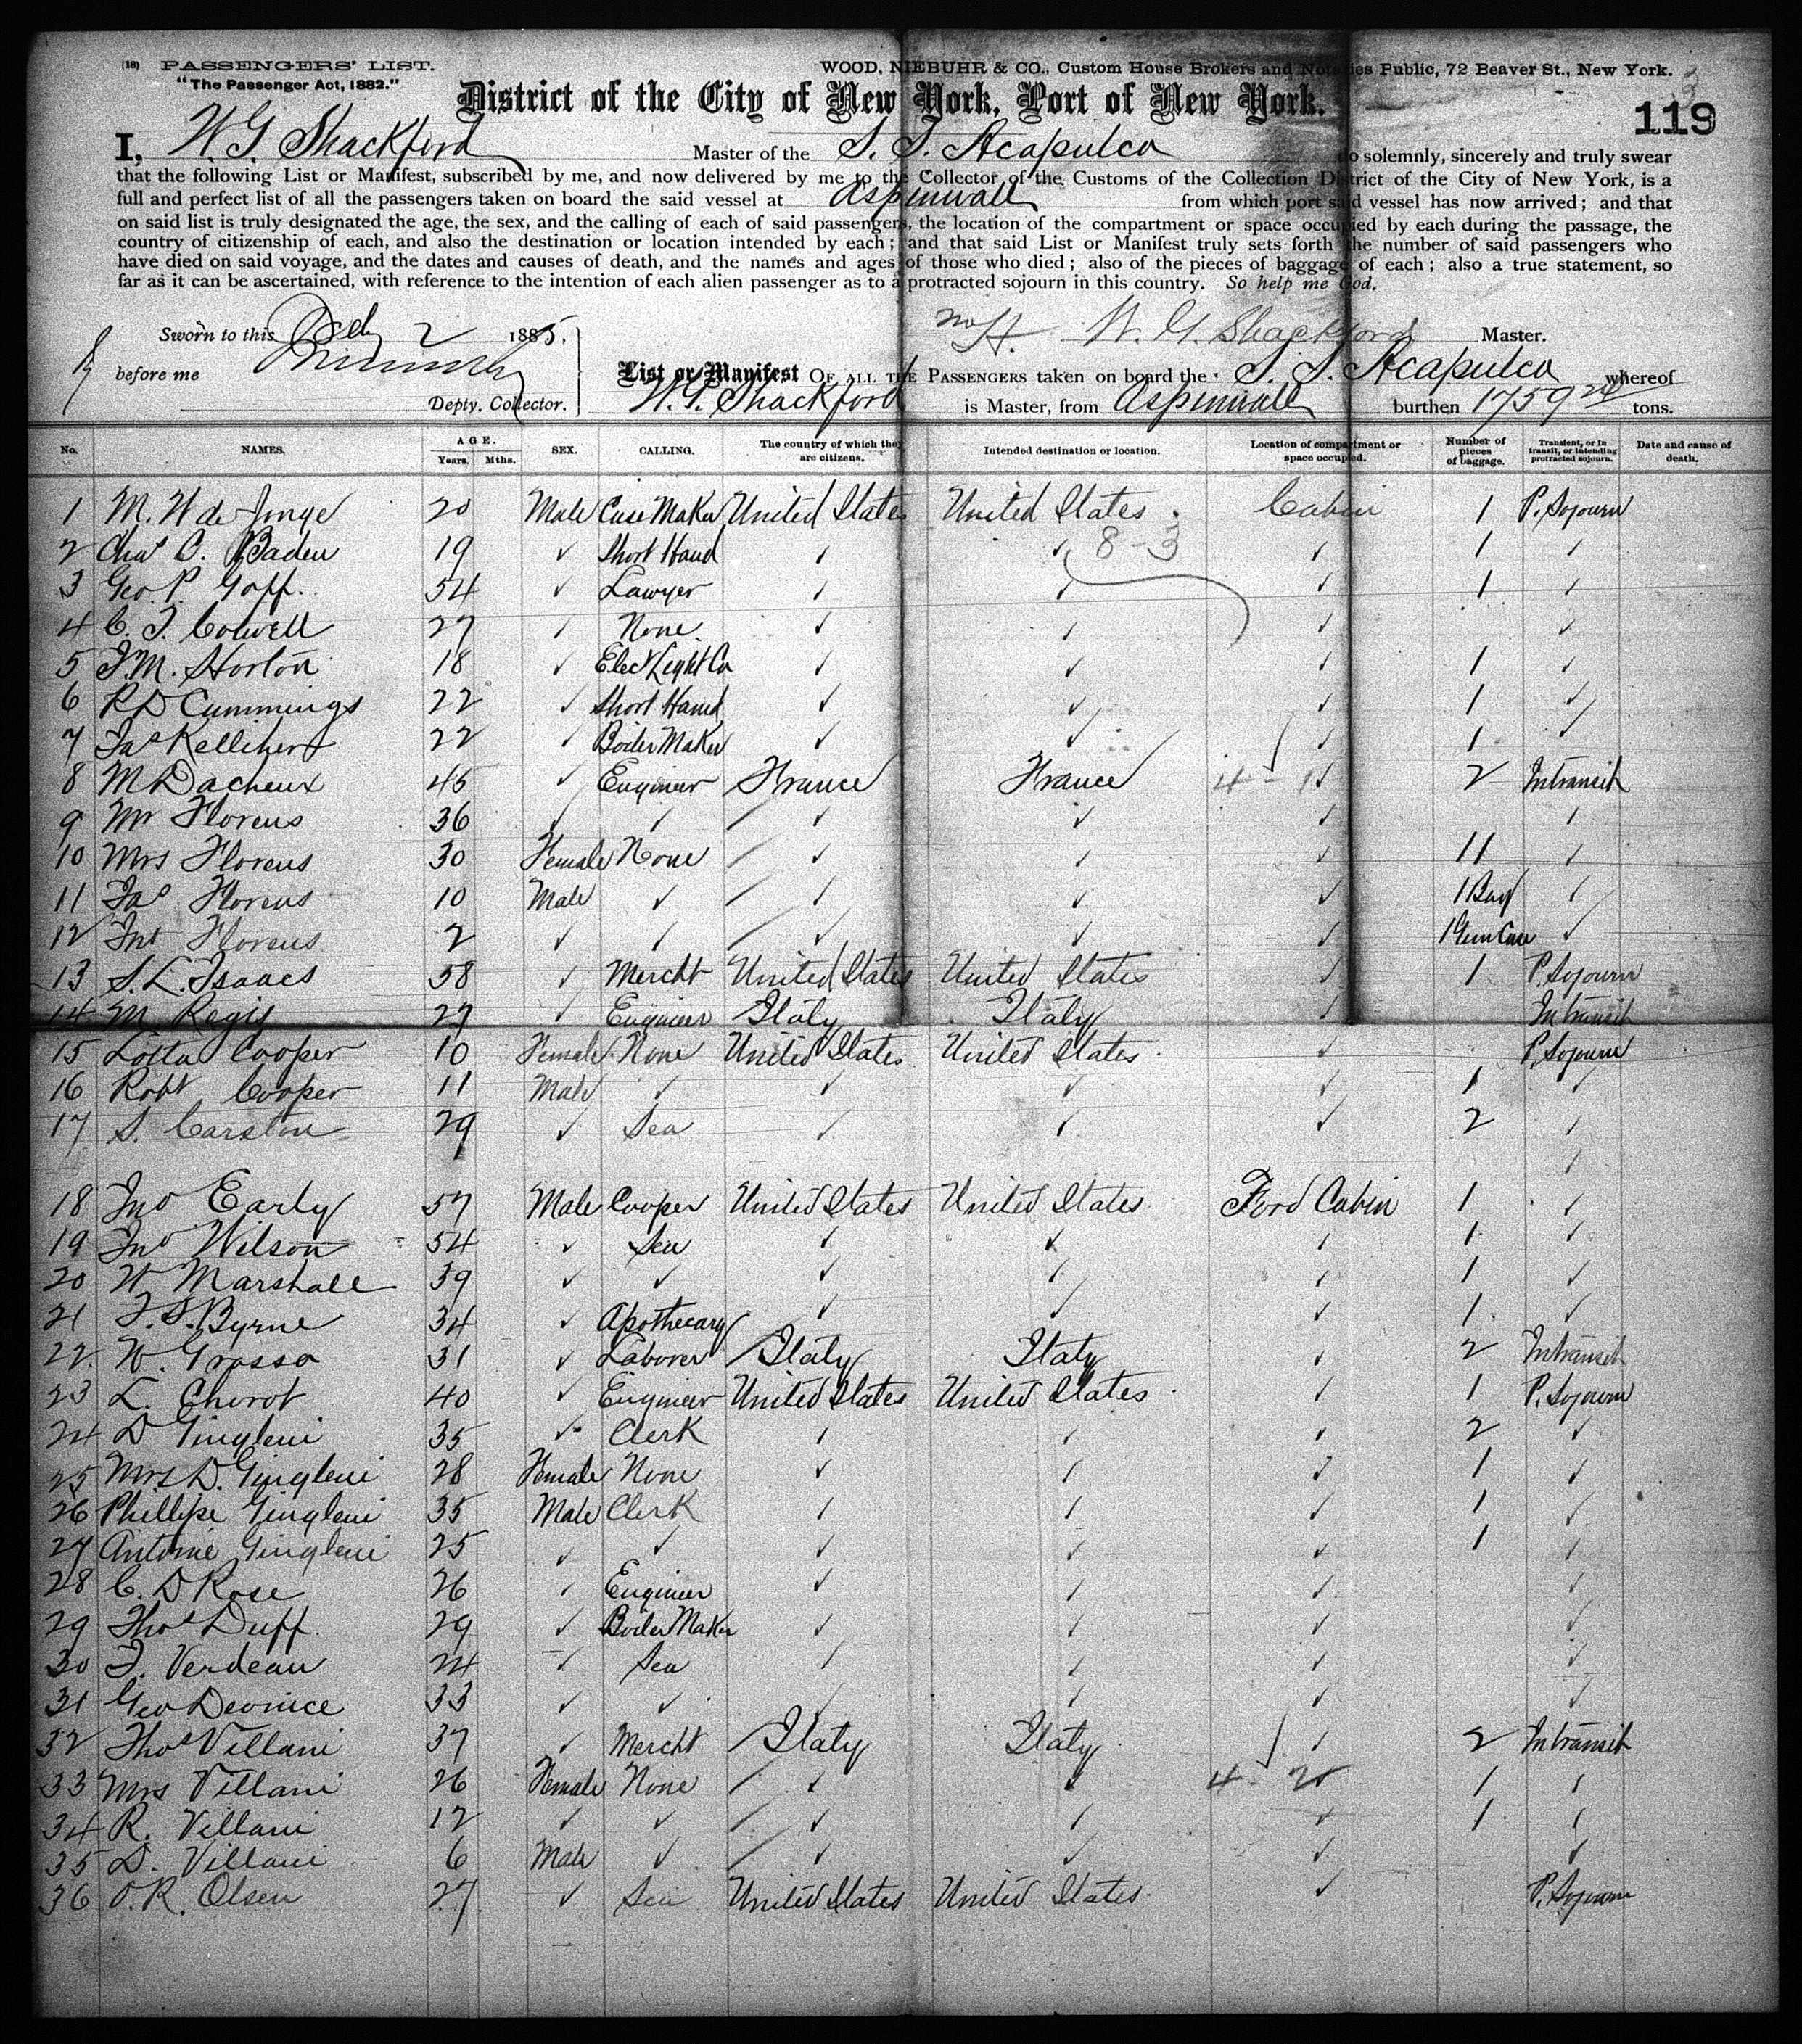 (18) PASSENGERS' LIST. WOOD, NIEBUHR & CO., Custom House Brokers and Notaries Public, 72 Beaver St., New York.
"The Passenger Act, 1882."
District of the City of New York, Port of New York.
119
I, W. G. Shackford Master of the S. S. Acapulco do solemnly, sincerely and truly swear
that the following List or Manifest, subscribed by me, and now delivered by me to the Collector of the Customs of the Collection District of the City of New York, is a
full and perfect list of all the passengers taken on board the said vessel at Aspinwall from which port said vessel has now arrived; and that
on said list is truly designated the age, the sex, and the calling of each of said passengers, the location of the compartment or space occupied by each during the passage, the
country of citizenship of each, and also the destination or location intended by each; and that said List or Manifest truly sets forth the number of said passengers who
have died on said voyage, and the dates and causes of death, and the names and ages of those who died; also of the pieces of baggage of each; also a true statement, so
far as it can be ascertained, with reference to the intention of each alien passenger as to a protracted sojourn in this country. So help me God.
Sworn to this 2 1885. W. G. Shackford Master.
before me
Depty. Collector.
List or Manifest OF ALL THE PASSENGERS taken on board the S. S. Acapulco whereof
W. G. Shackford is Master, from Aspinwall burthen 1759 tons.
No. NAMES. AGE. Years. Mths. SEX. CALLING. The country of which they are citizens. Intended destination or location. Location of compartment or space occupied. Number of pieces of baggage. Transient, or in transit, or intending protracted sojourn. Date and cause of death.
1 M. W de Jonge 20 Male Case Maker United States United States Cabin 1 P. Sojourn
2 Chas C. Baden 19 ✓ Short Hand ✓ ✓ 8-3 ✓ 1 ✓
3 Geo. P. Goff. 54 ✓ Lawyer ✓ ✓ ✓ 1 ✓
4 C. T. Colwell 27 ✓ None ✓ ✓ ✓ ✓
5 J. M. Horton 18 ✓ Elec Light Co ✓ ✓ ✓ 1 ✓
6 R D Cummings 22 ✓ Short Hand ✓ ✓ ✓ 1 ✓
7 Jas Kelliher 22 ✓ Boiler Maker ✓ ✓ ✓ 1 ✓
8 M Dacheux 45 ✓ Engineer France France 4-1 ✓ 2 Intransit
9 Mr Florens 36 ✓ ✓ ✓ ✓ ✓ ✓
10 Mrs Florens 30 Female None ✓ ✓ ✓ 11 ✓
11 Jas Florens 10 Male ✓ ✓ ✓ ✓ 1 Bag ✓
12 Jno Florens 2 ✓ ✓ ✓ ✓ ✓ 1 Gun Case ✓
13 S. L. Isaacs 58 ✓ Mercht United States United States ✓ 1 P. Sojourn
14 M Regis 27 ✓ Engineer Italy Italy ✓ Intransit
15 Lotta Cooper 10 Female None United States United States ✓ P. Sojourn
16 Robt Cooper 11 Male ✓ ✓ ✓ ✓ 1 ✓
17 S. Carston 29 ✓ Sea ✓ ✓ ✓ 2 ✓
✓
18 Jno Early 57 Male Cooper United States United States Ford Cabin 1 ✓
19 Jno Wilson 54 ✓ Sea ✓ ✓ ✓ 1 ✓
20 W Marshall 39 ✓ ✓ ✓ ✓ ✓ 1 ✓
21 T. S. Byrne 34 ✓ Apothecary ✓ ✓ ✓ 1 ✓
22 W. Grosso 31 ✓ Laborer Italy Italy ✓ 2 Intransit
23 L. Chorot 40 ✓ Engineer United States United States ✓ 1 P. Sojourn
24 D Gingleni 35 ✓ Clerk ✓ ✓ ✓ 2 ✓
25 Mrs D. Gingleni 28 Female None ✓ ✓ ✓ 1 ✓
26 Phillipe Gingleni 35 Male Clerk ✓ ✓ ✓ 1 ✓
27 Antoine Gingleni 25 ✓ ✓ ✓ ✓ ✓ 1 ✓
28 C. D Rose 26 ✓ Engineer ✓ ✓ ✓ ✓
29 Thos Duff. 29 ✓ Boiler Maker ✓ ✓ ✓ ✓
30 J. Verdeau 24 ✓ Sea ✓ ✓ ✓ ✓
31 Geo Deonice 33 ✓ ✓ ✓ ✓ ✓ ✓
32 Thos Villani 37 ✓ Mercht Italy Italy ✓ 2 Intransit
33 Mrs Villani 26 Female None ✓ ✓ 4-2 1 ✓
34 R. Villani 12 ✓ ✓ ✓ ✓ ✓ 1 ✓
35 D. Villani 6 Male ✓ ✓ ✓ ✓ ✓
36 O. R. Olsen 27 ✓ Sea United States United States ✓ P. Sojourn